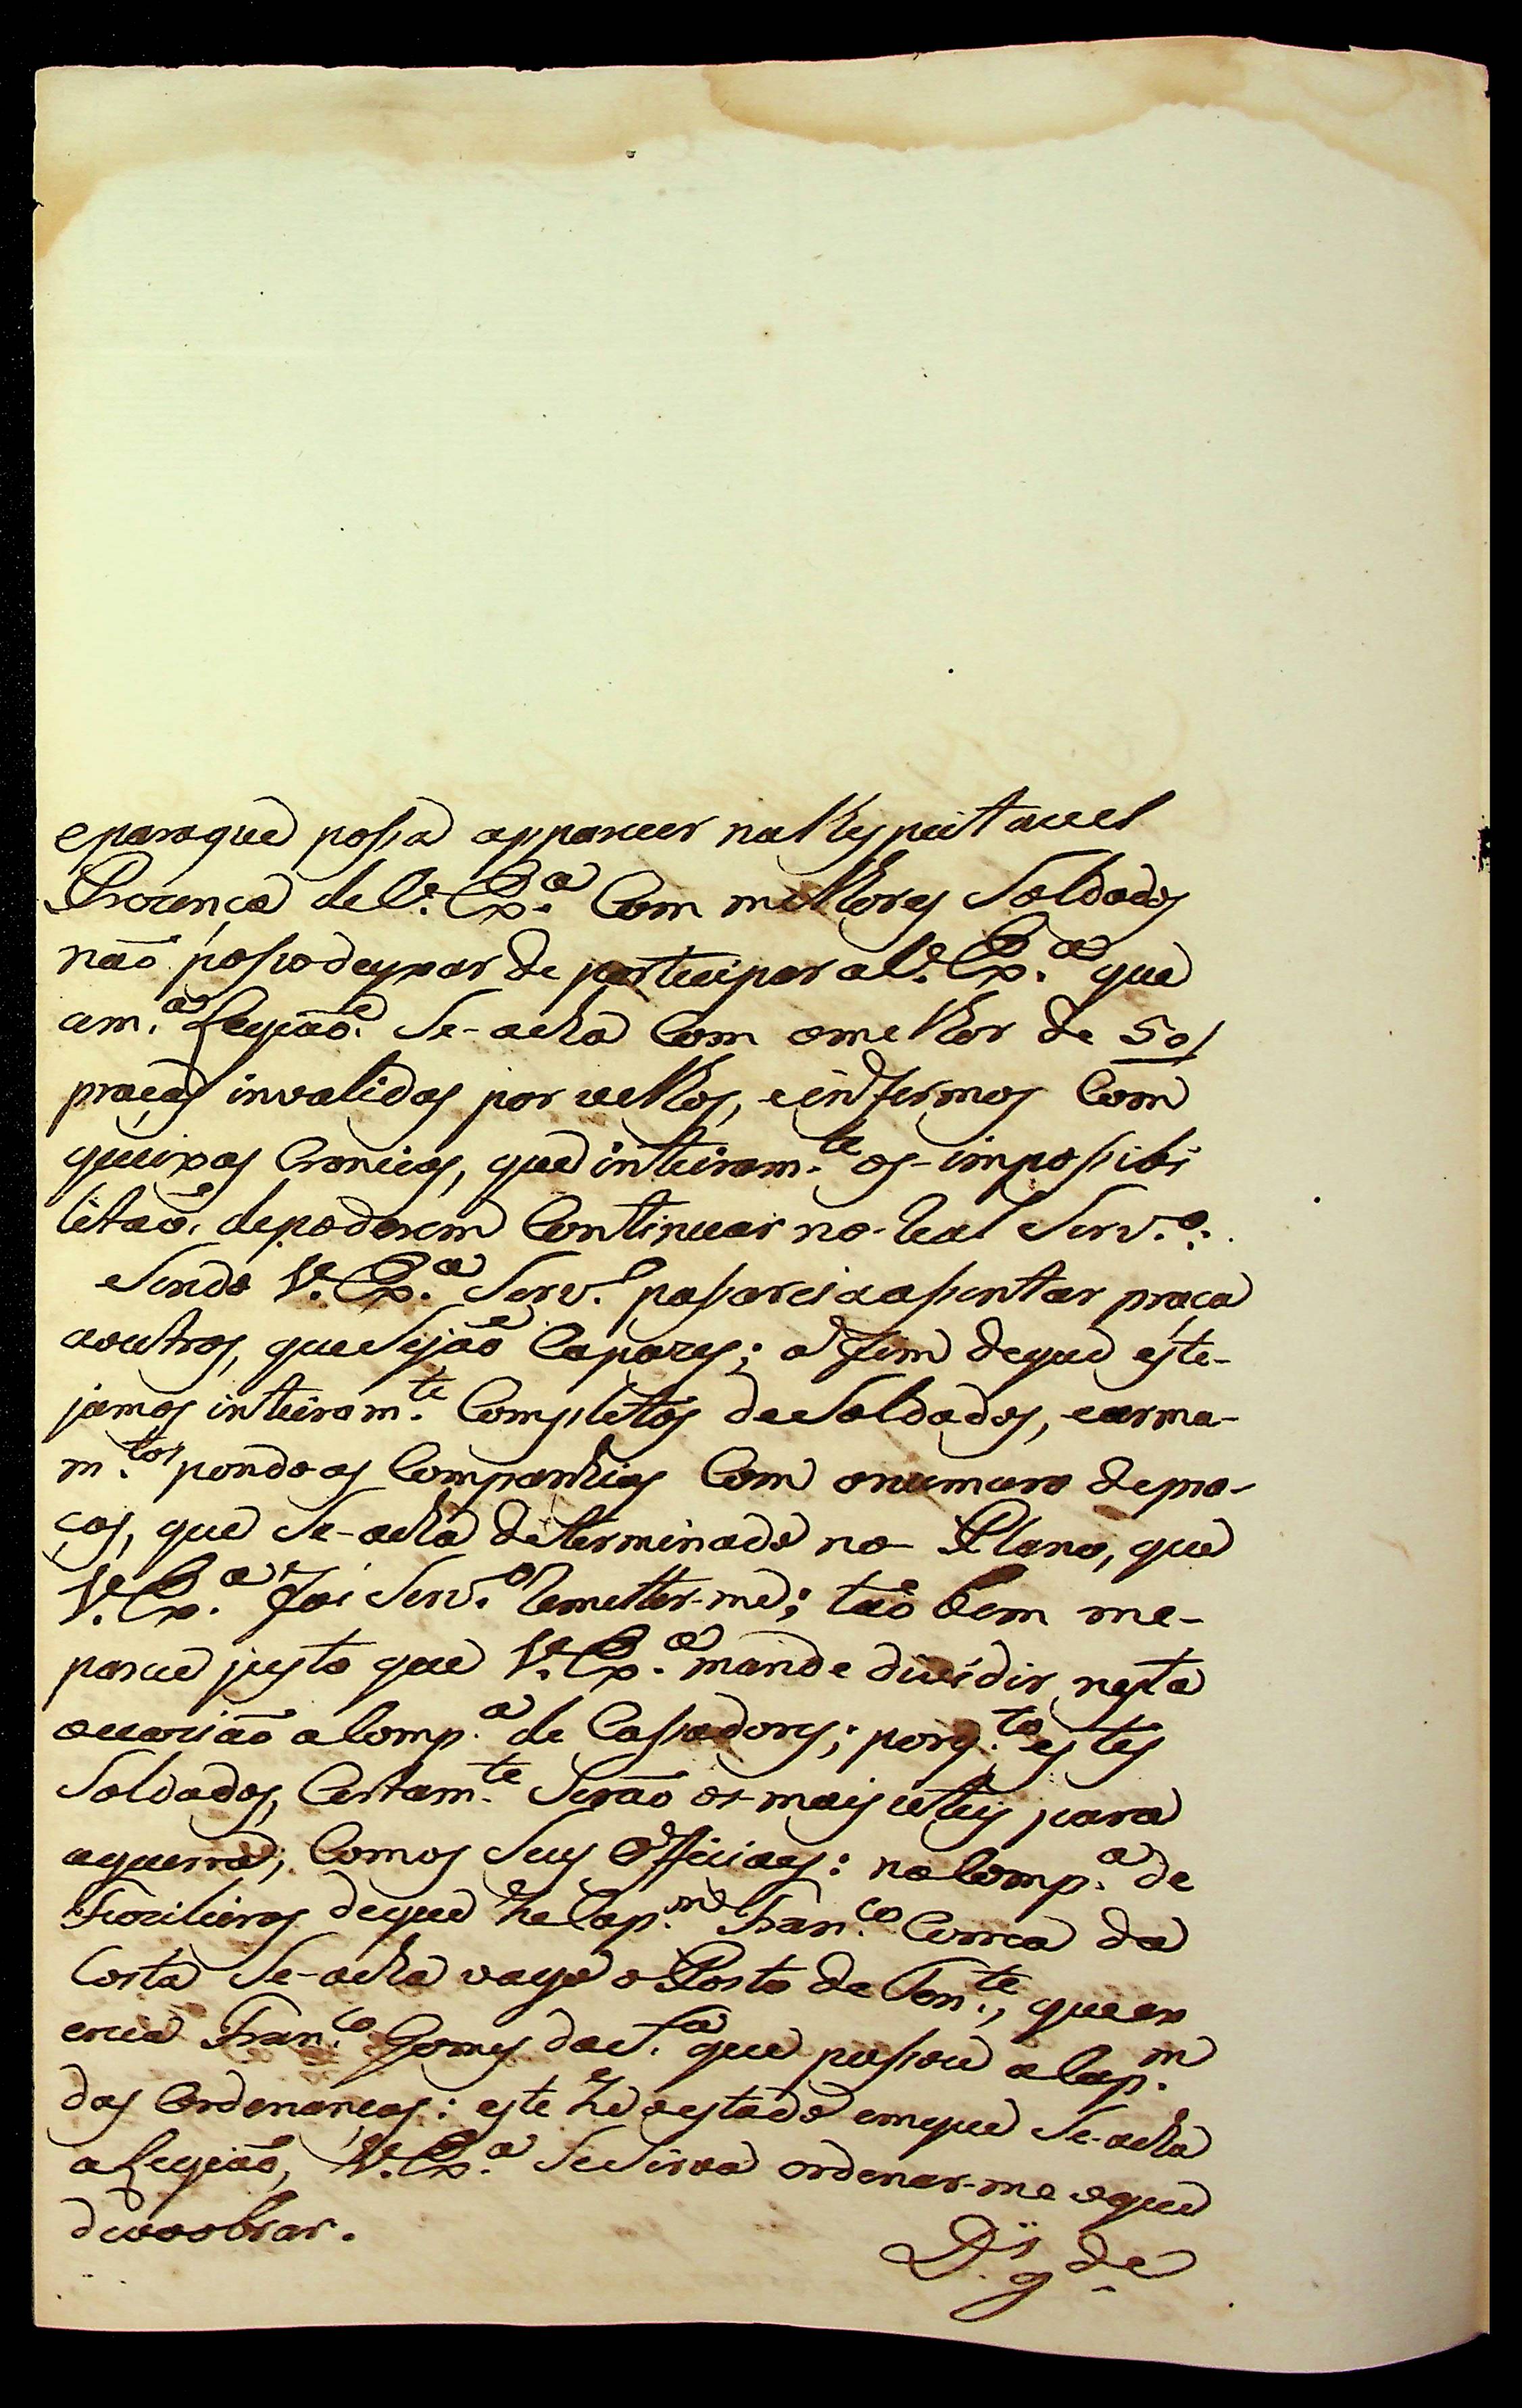 eparaque possa apparecer naRespeitavel
Prezença deV. Ex.ª Com melhores Soldados
não possodeyxar de participar aV. Ex.ª que
am.ª Legião Se-acha Com omelhor de 50/
praças invalidas por velhos, einfermos Com
queixas Cronicas, que inteiram.te os-impossibi
litaõ, depoderem Continuar no-Real Serv.º:
Sendo V. Ex.ª Serv.º passarei aassentar praça
aoutros, queSejão Capazes; afim deque este-
jamos inteiram.te Completos deSoldados, earma-
m.tos pondo as Companhias Com onumaro depra-
ças, que Se-acha determinado no Plano, que
V. Ex.ª foi Serv.º Remetter-me; tão bem me-
parece justo que V. Ex.ª mande dividir nesta
ocazião aComp.ª de Cassadores; porq.to estes
Soldados, Certam.te Serão os-mais uteis para
aguerra, Comos Seus Officiaes: naComp.ª de
Fuzileiros deque he Cap.m Fran.co Correa da
Costa Se-acha vago o Posto de Ten.te, que ex
ercia Fran.co Gomes daS.ª que passou aCap.m
das Ordenanças: este he oestado emque Se-acha
aLegião, V. Ex.ª SeSirva ordenar-me oque
devo obrar.
D.s g.de